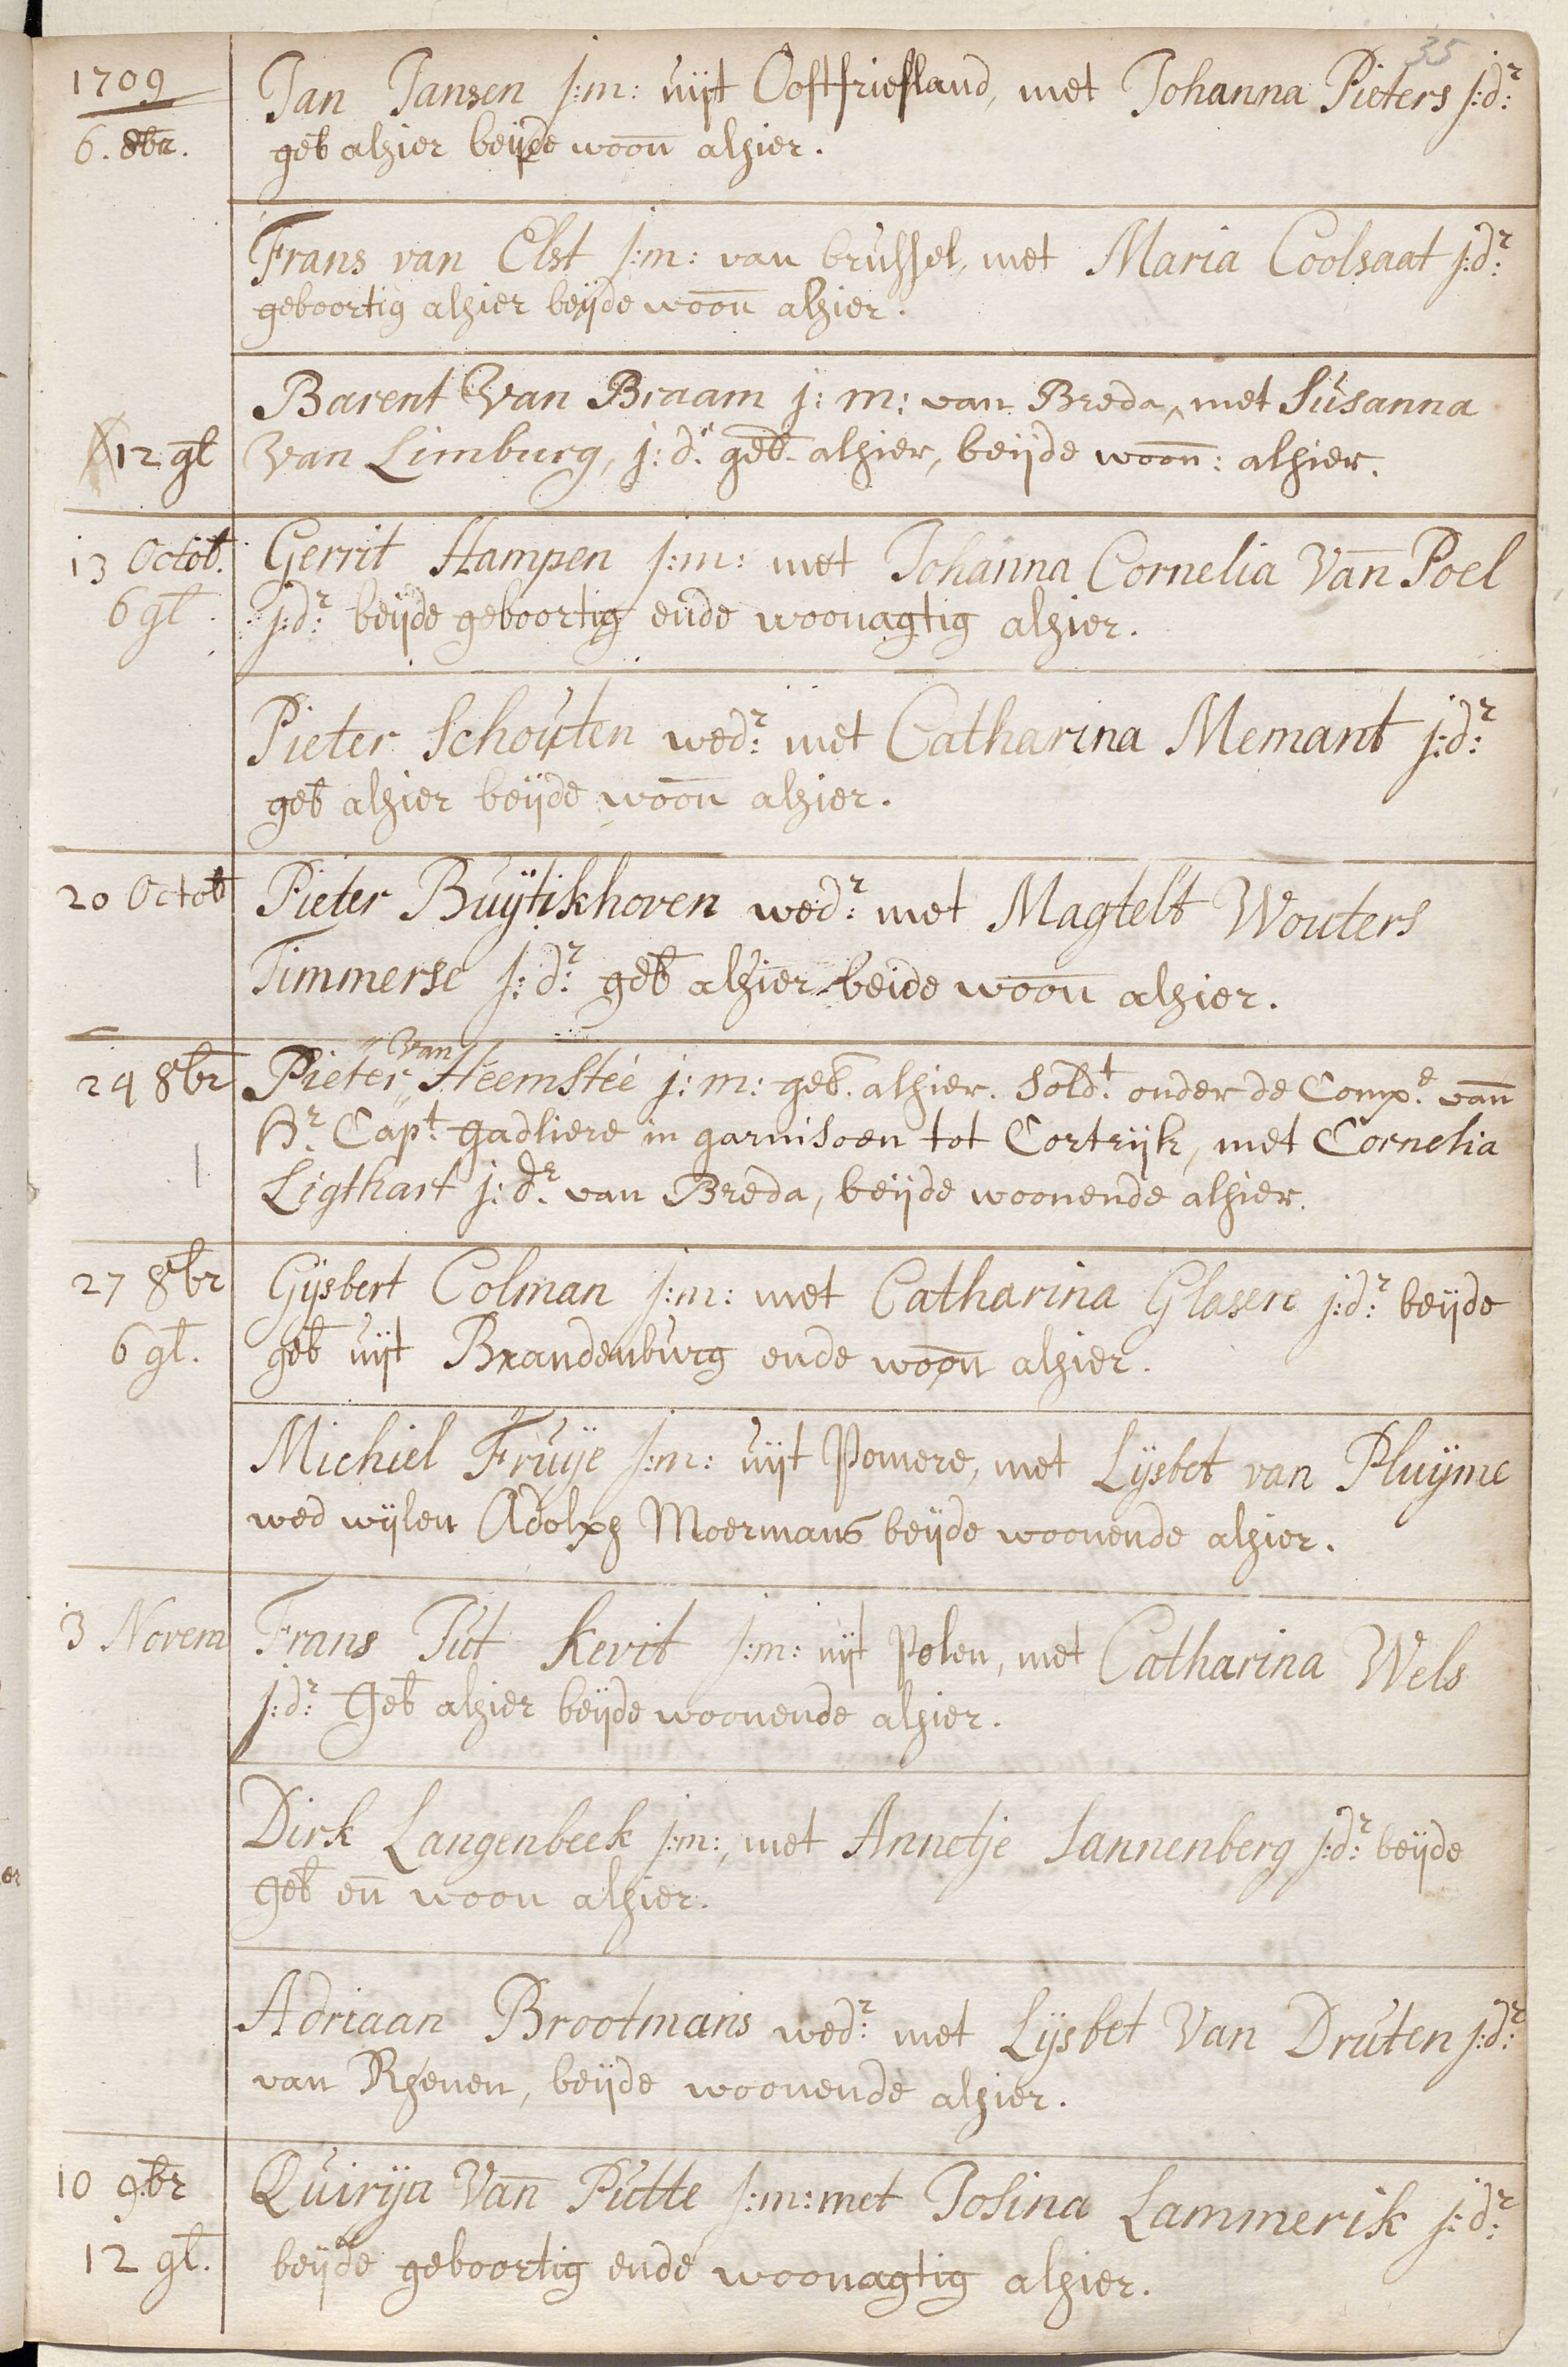 35
1709
6. 8br.
Jan Jansen j:m: uijt Oostfriesland, met Johanna Pieters j:dr:
geb alhier beijde woon alhier.
Frans van Elst j:m: van brussel, met Maria Coolsaat j:dr:
geboortig alhier beijde woon alhier.
Barent Van Braam j: m: van Breda, met Susanna
12 gl
Van Limburg, j: dr. geb. alhier, beijde woon: alhier.
13 Octob.
Gerrit Hampen j:m: met Johanna Cornelia Van Poel
6 gl.
j:dr: beijde geboortig ende woonagtig alhier.
Pieter Schouten wedr: met Catharina Memant j:dr:
geb alhier beijde woon alhier.
20 Octob
Pieter Buijtikhoven wedr: met Magtelt Wouters
Timmerse j:dr: geb alhier beide woon alhier.
24 8br
Pieter van Heemsteé j:m: geb. alhier. Soldt. onder de Compe. van
Hr. Capt. Gadliere in garnisoen tot Cortrijk, met Cornelia
Ligthart j:dr. van Breda, beijde woonende alhier.
27 8br
Gijsbert Colman j:m: met Catharina Glasere j:dr: beijde
6 gl.
geb uijt Brandenburg ende woon alhier.
Michiel Fruije j:m: uijt Pomere, met Lijsbet van Pluijme
wed wijlen Adolph Moermans beijde woonende alhier.
3 Novem
Frans Tut Kevit j:m: uijt Polen, met Catharina Wels
j:dr: Geb alhier beijde woonende alhier.
Dirk Langenbeek j:m:, met Annetje Sannenberg j:dr: beijde
Geb en woon alhier.
Adriaan Brootmans wedr: met Lijsbet Van Druten j:dr:
van Rhenen, beijde woonende alhier.
10 9br
Quirijn Van Putte j:m: met Josina Lammerik j:dr:
12 gl.
beijde geboortig ende woonagtig alhier.